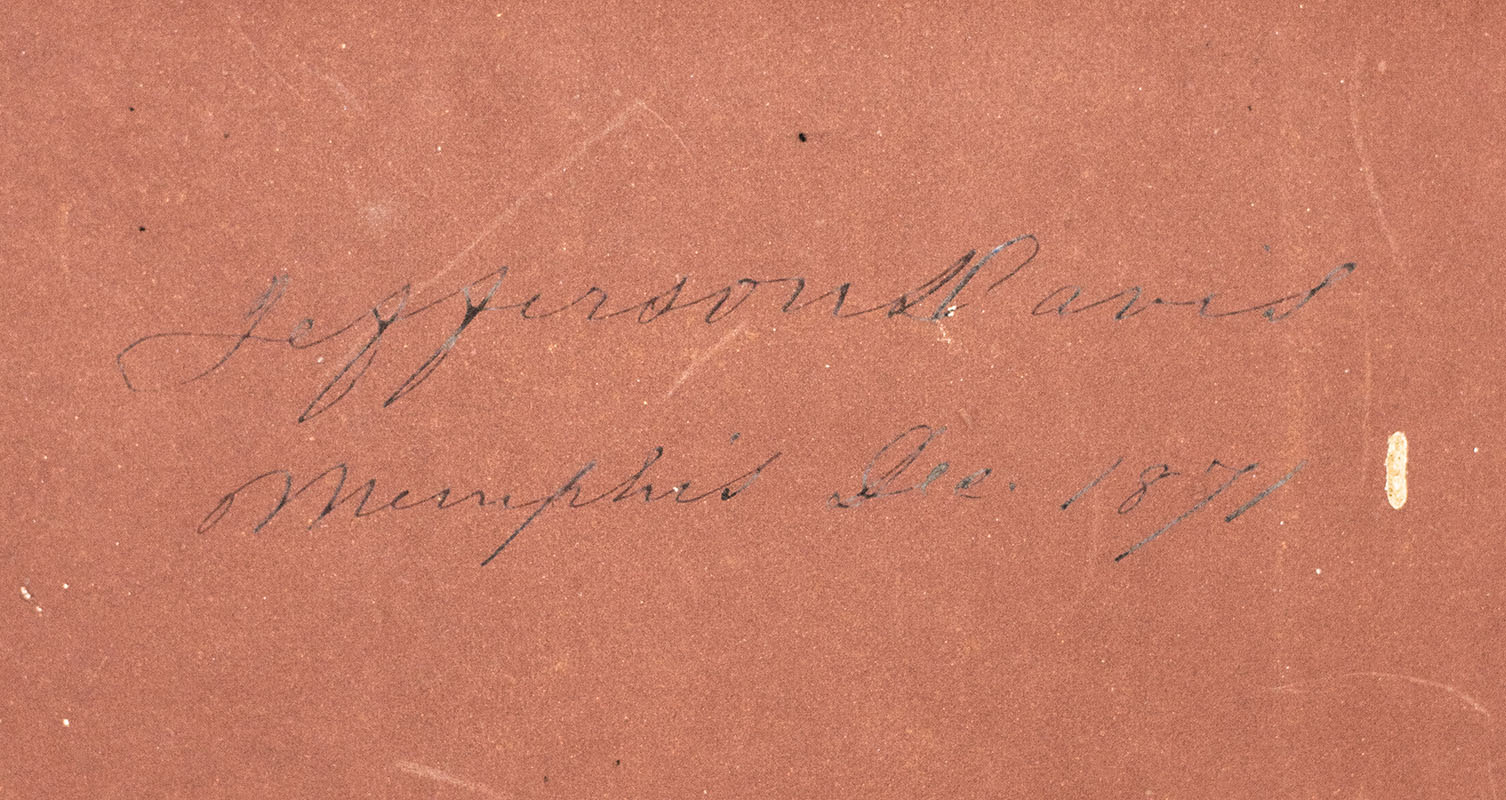 Jefferson Davis
Memphis Dec. 1871